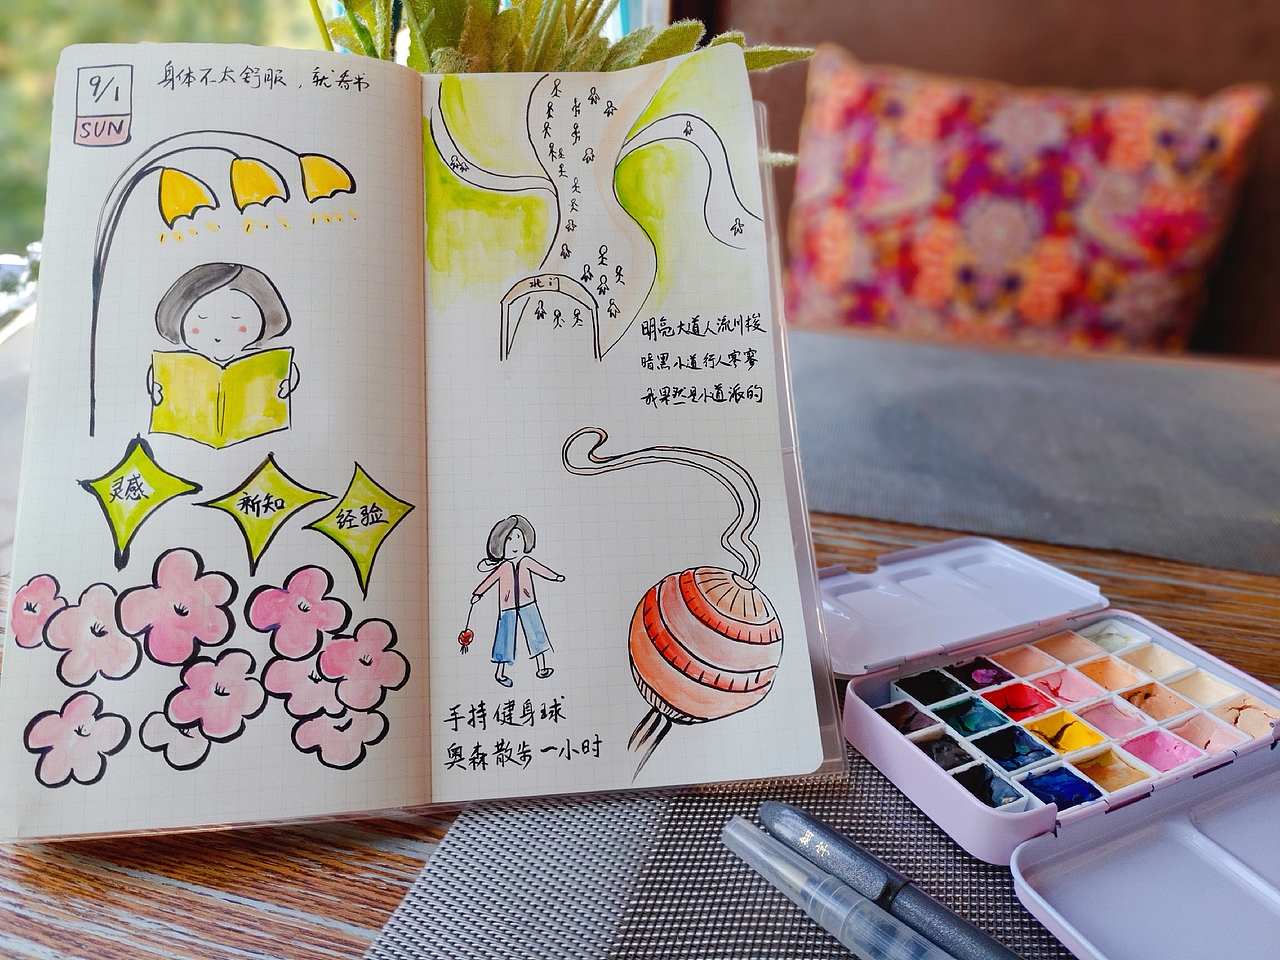 9/1
SUN
身体不太舒服，就看书
灵感
新知
经验
北门
明亮大道人流川梭
暗黑小道行人寥寥
我果然是小道派的
手持健身球
奥森散步一小时
細字